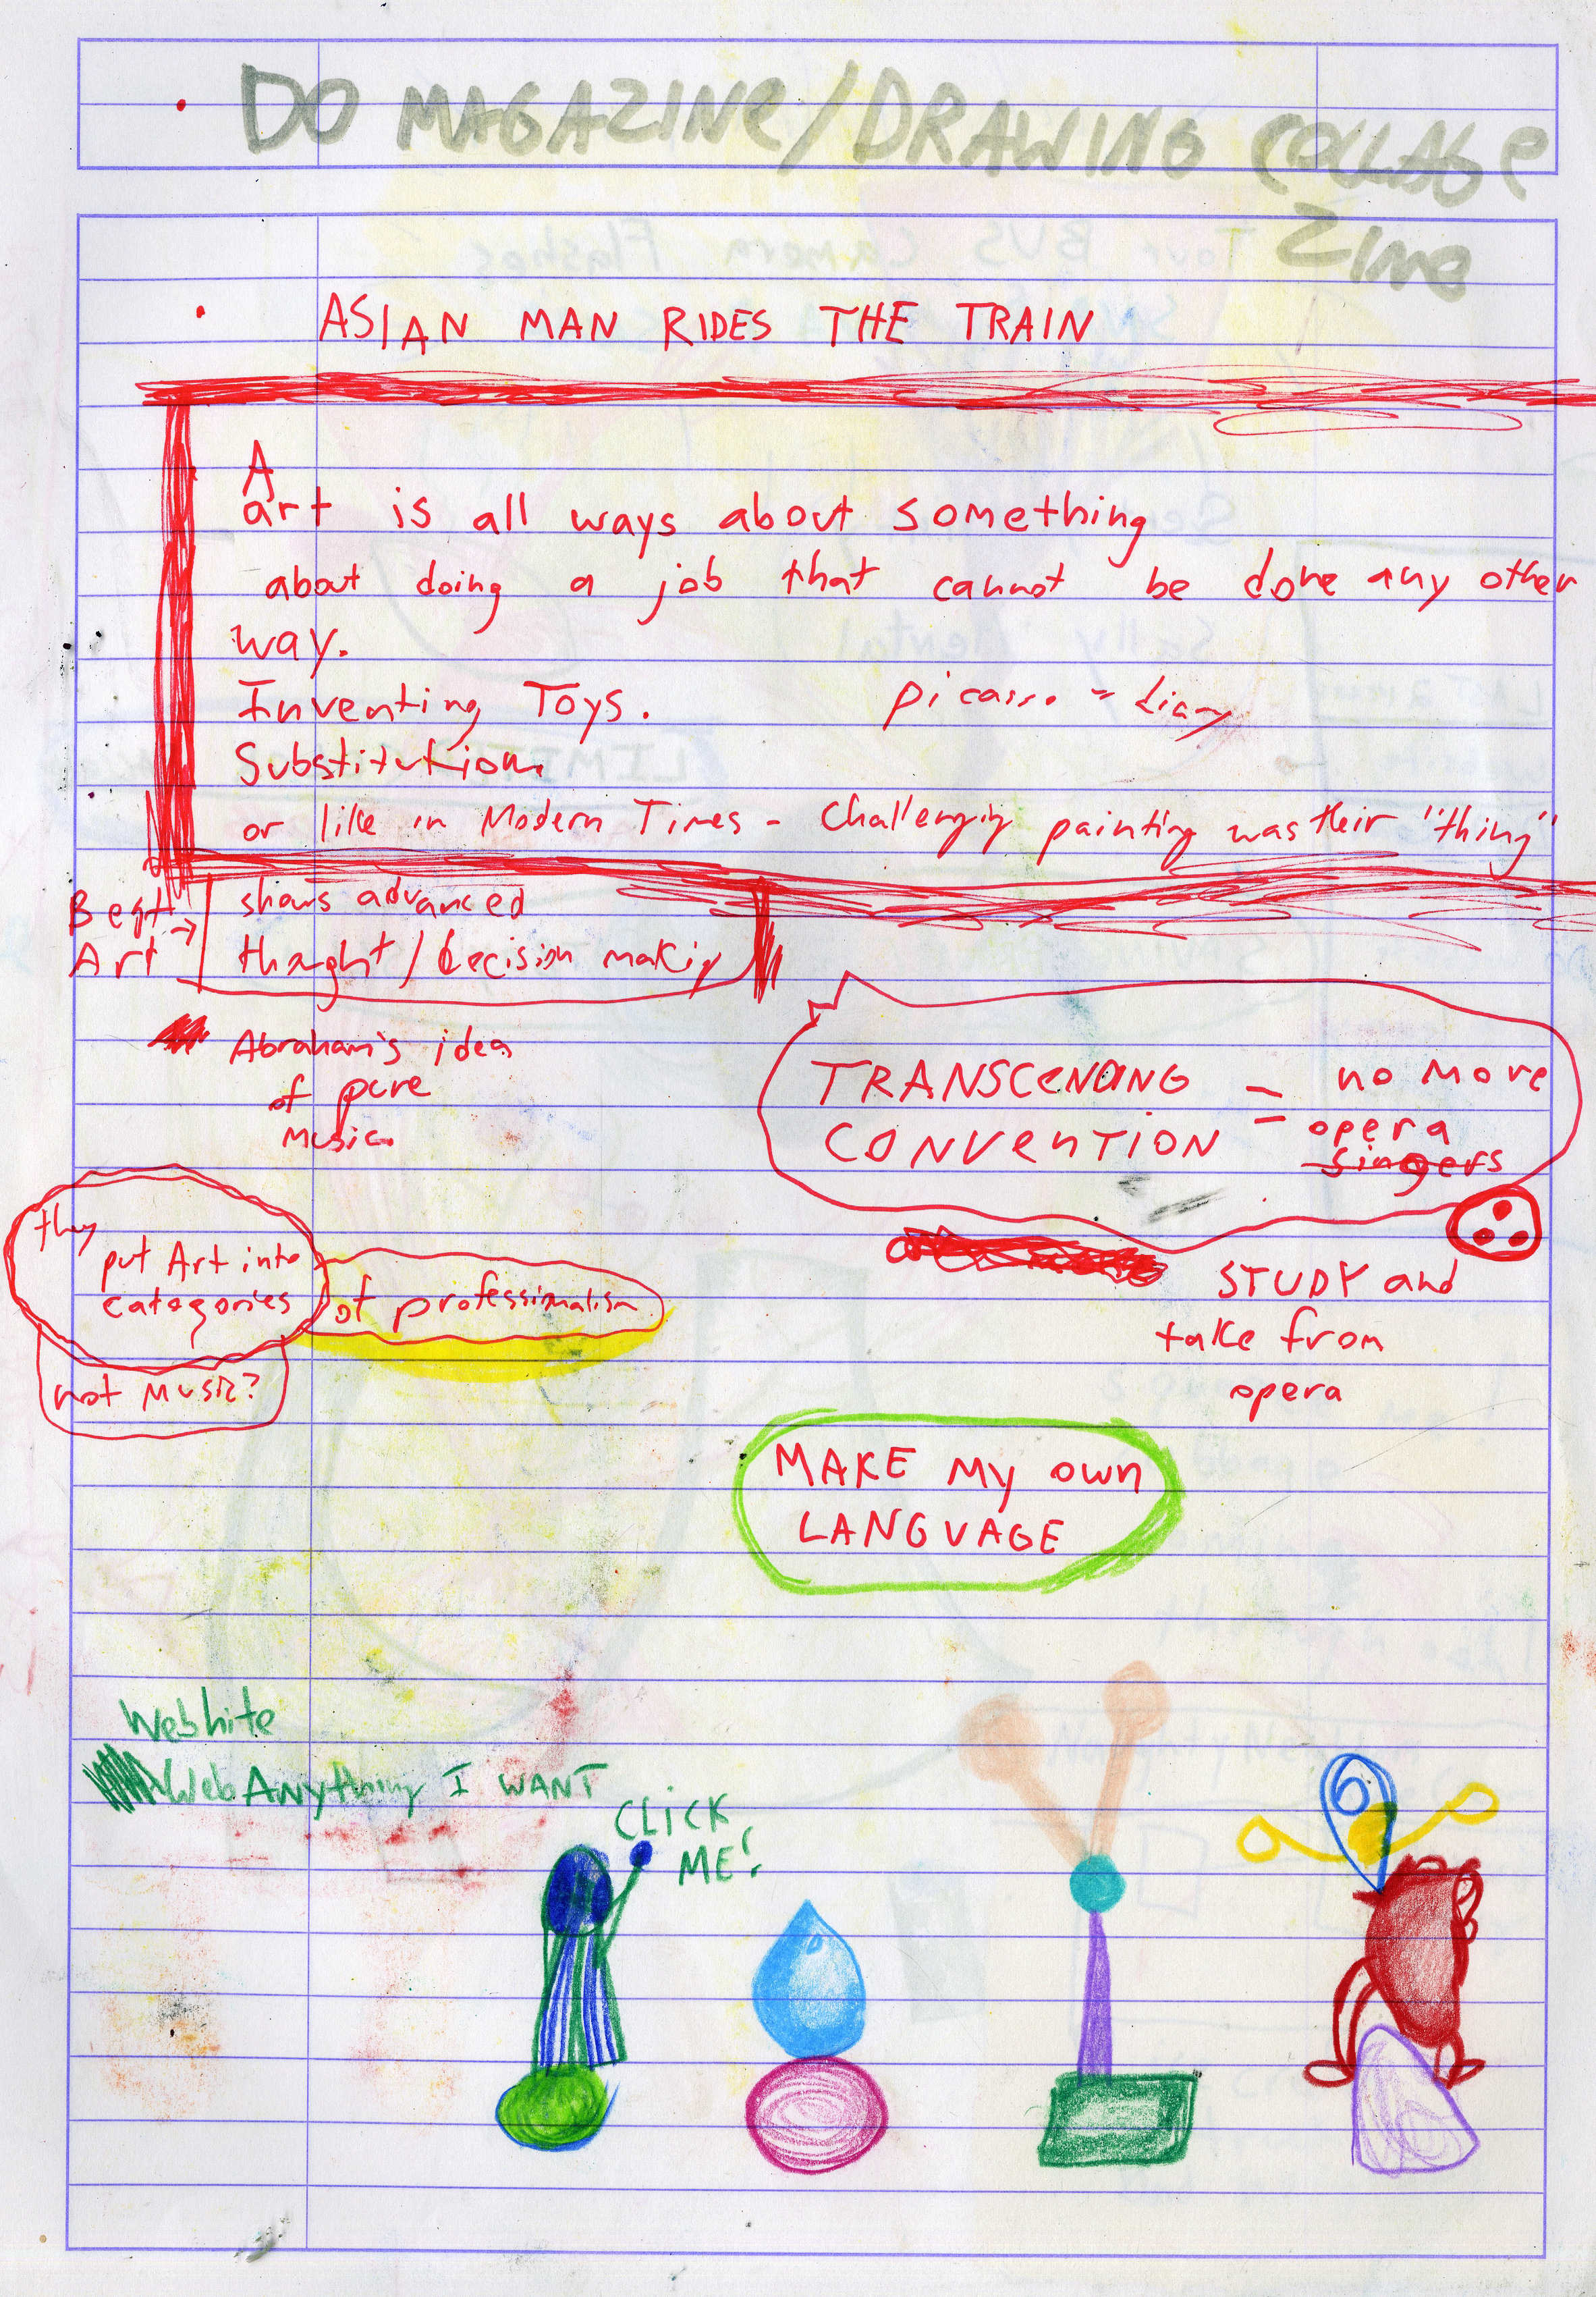 DO MAGAZINe/DRAWING COLLAGe
Zine
ASIAN MAN RIDES THE TRAIN
A
art is all ways about something
about doing a job that cannot be done any other
way.
Inventing Toys.
picasso = diary
Substitution.
or like in Modern Times - Challenging painting was their "thing"
Best Art →
shows advanced
thought / decision making
Abraham's idea
of pure
music.
TRANSCENDING = no more
CONVENTION opera
singers
they
put Art into
categories
of professionalism
not Music?
STUDY and
take from
opera
MAKE My own
LANGUAGE
Webhite
Web Anything I WANT
CLICK
ME!